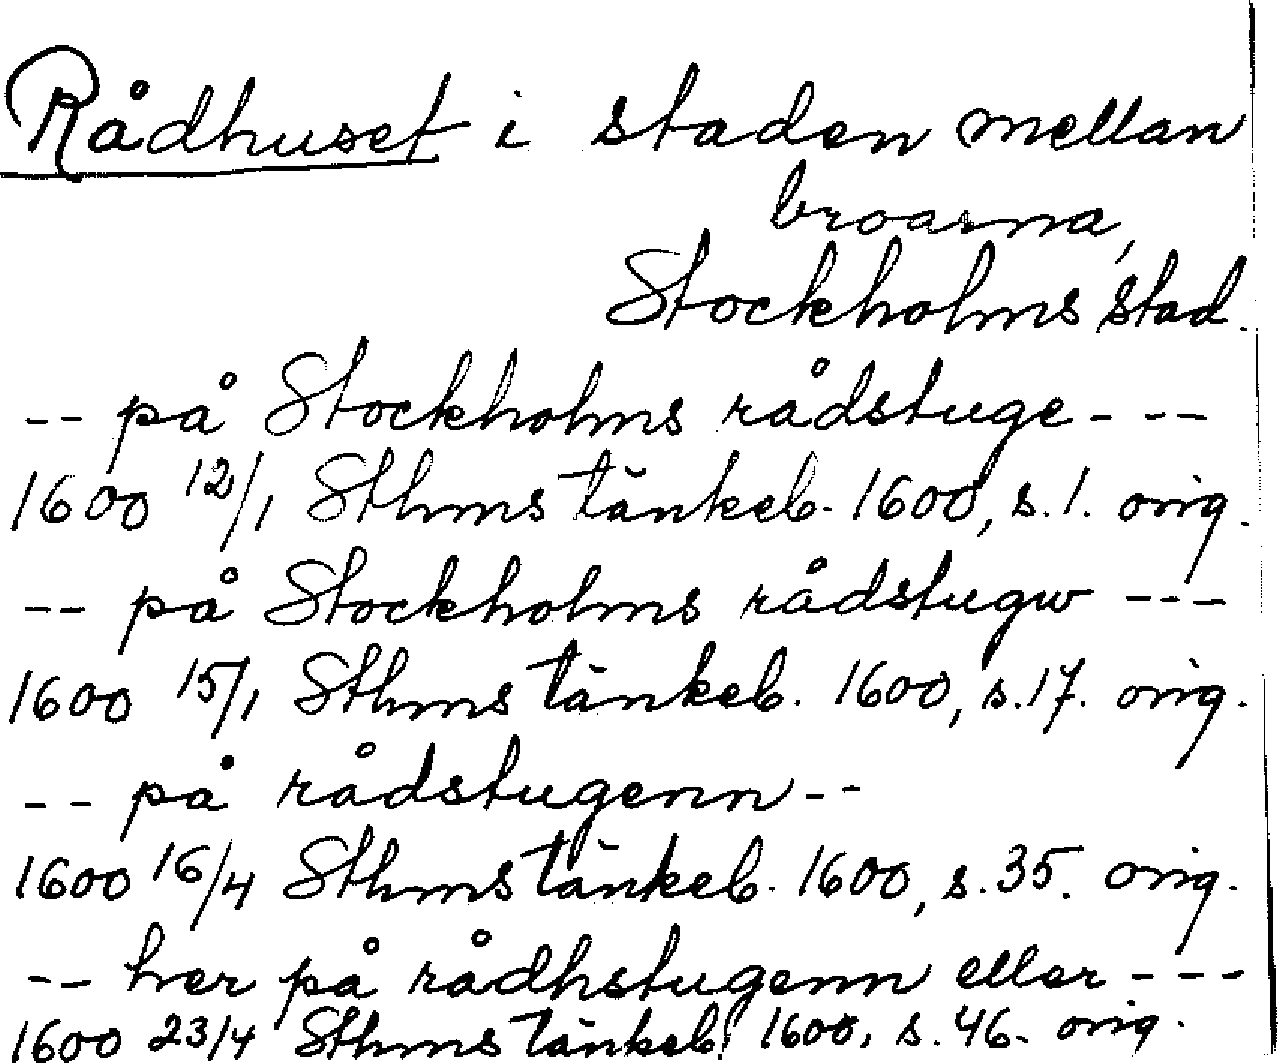 Rådhuset i staden mellan
broarna,
Stockholms stad.
-- på Stockholms rådstuge - - -
1600 12/1 Sthms tänkeb. 1600, s. 1. orig.
-- på Stockholms rådstugw - - -
1600 15/1 Sthms tänkeb. 1600, s. 17. orig.
-- på rådstugenn --
1600 16/4 Sthms tänkeb. 1600, s. 35. orig.
-- her på rådhstugenn eller - - -
1600 23/4 Sthms tänkeb. 1600, s. 46. orig.